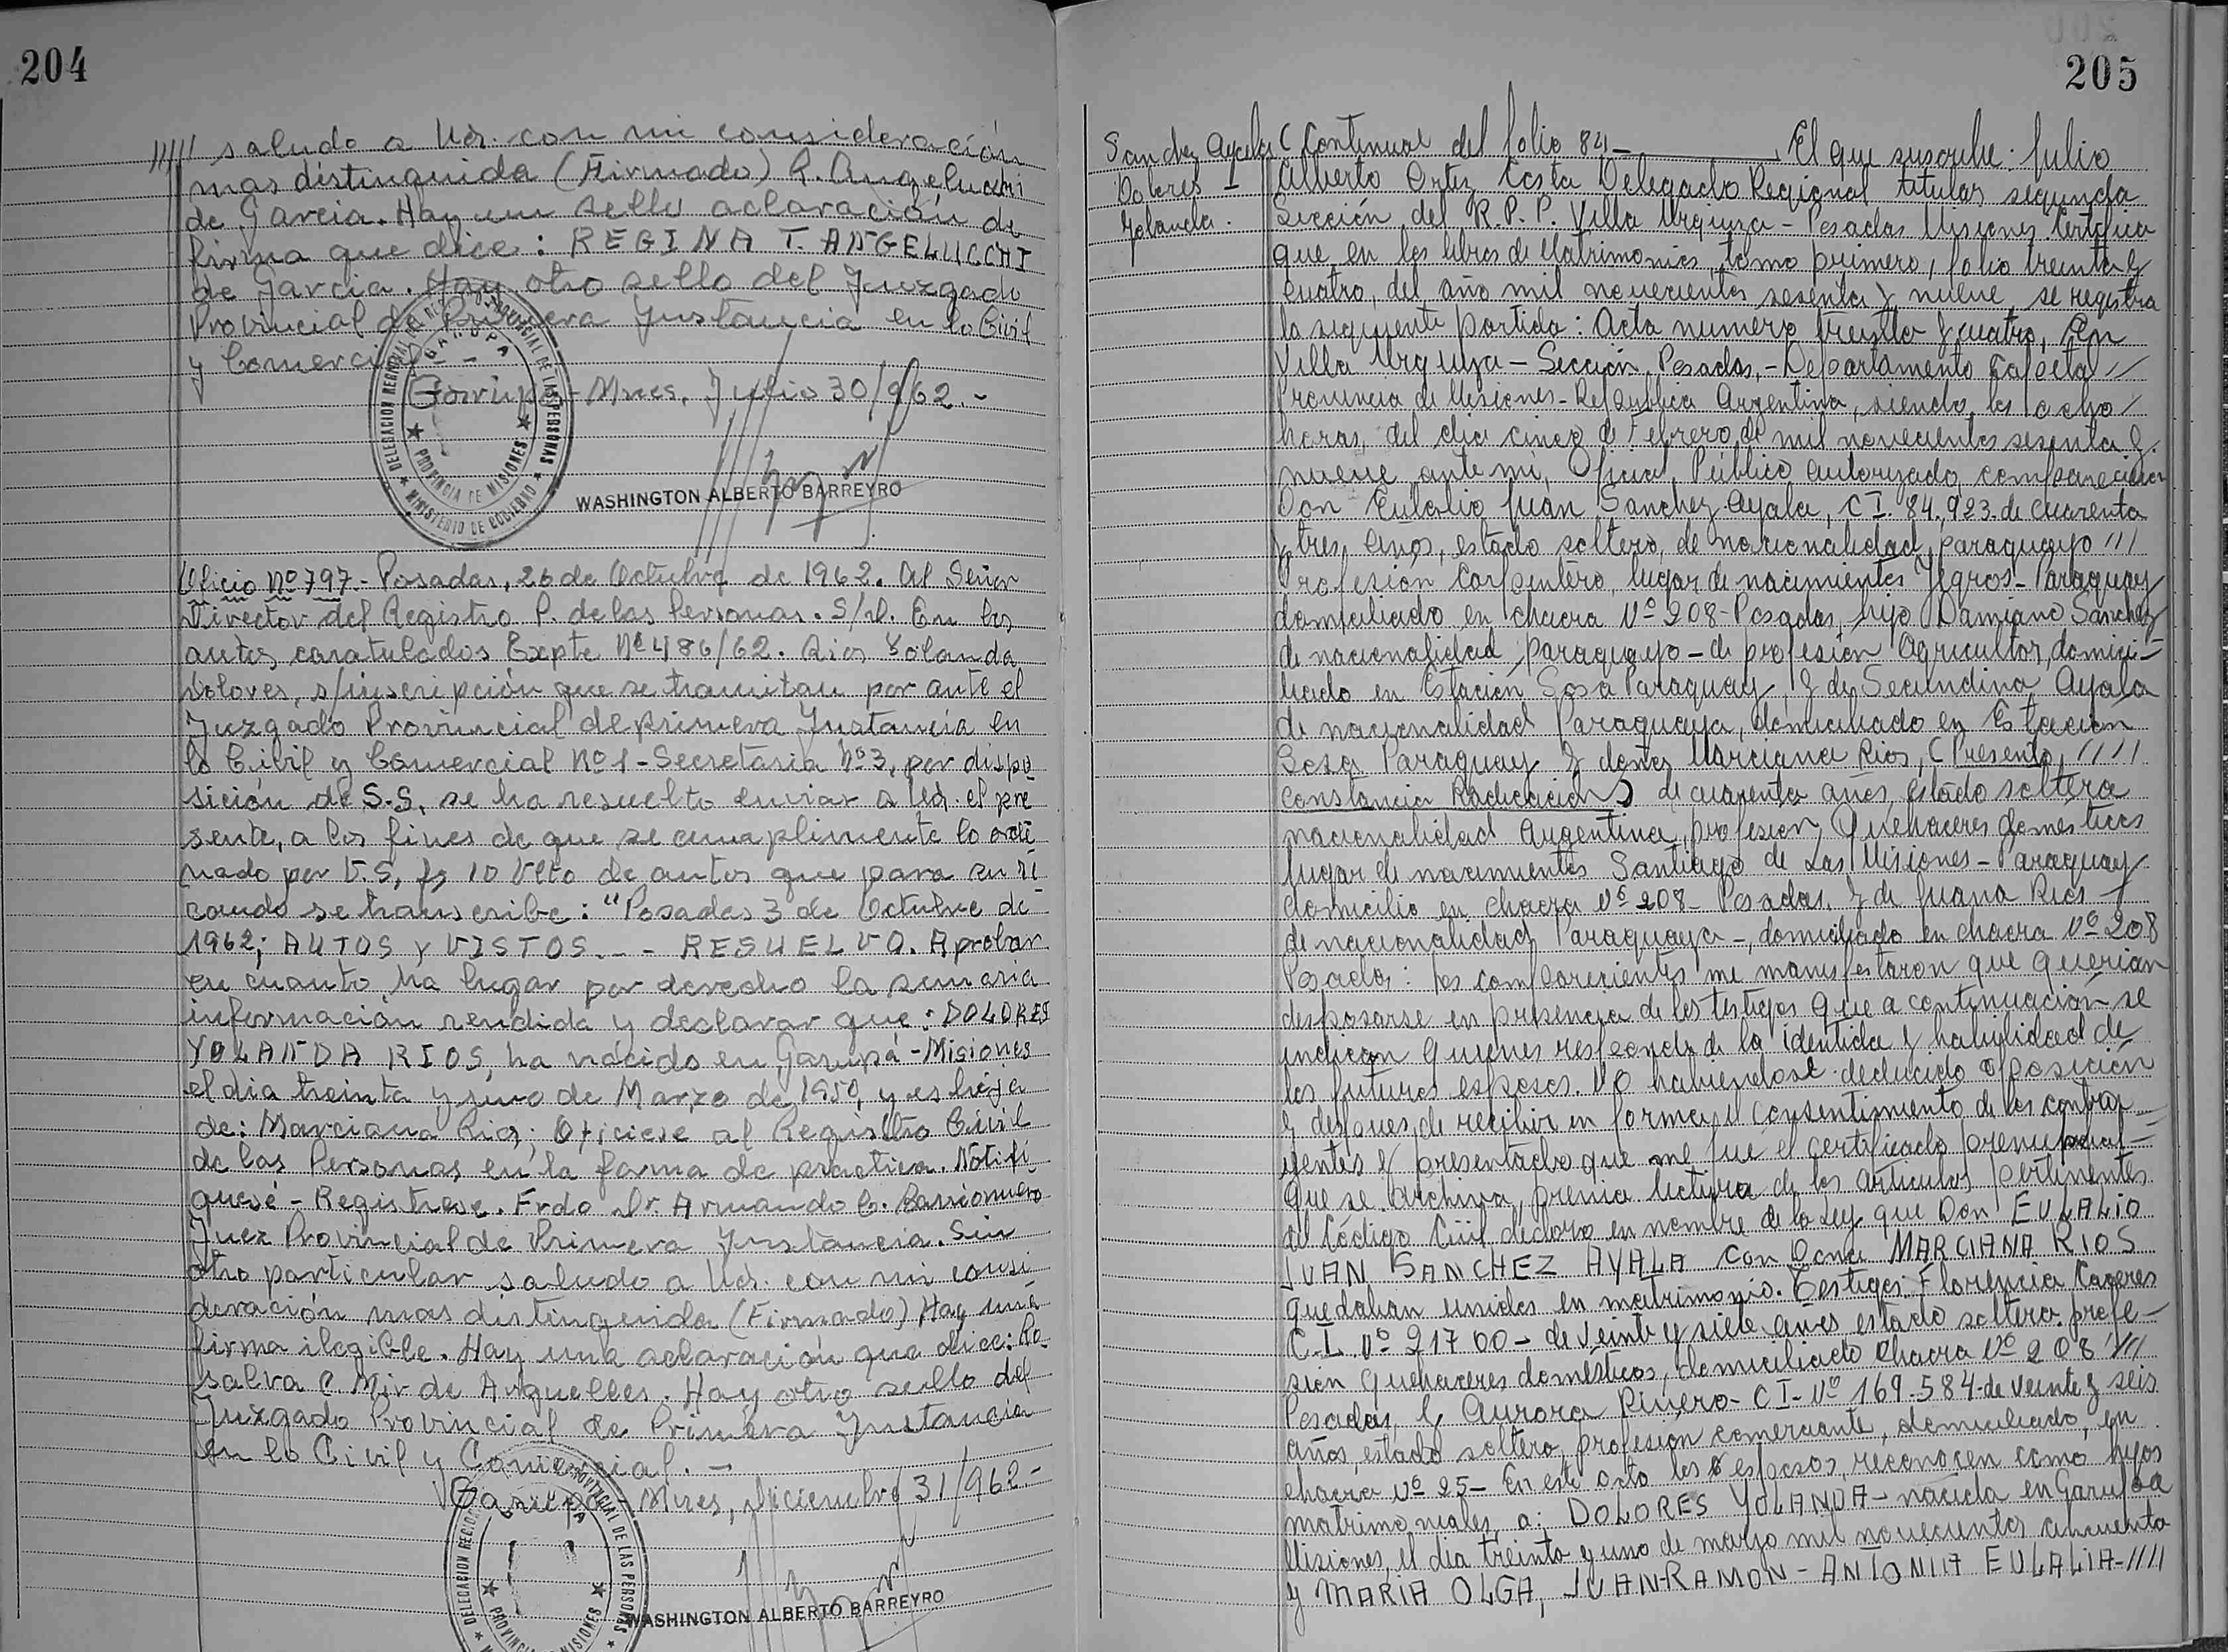 204
///// saludo a Ud. con mi consideración
mas distinguida (Firmado) R. Angelucchi
de Garcia. Hay un sello aclaración de
firma que dice: REGINA T. ANGELUCCHI
de Garcia. Hay otro sello del Juzgado
Provincial de Primera Instancia en lo Civil
y Comercial
Garupá-Mnes, Julio 30/962.-
DELEGACION REGIONAL DEL REGISTRO PROVINCIAL DE LAS PERSONAS
GARUPA
PROVINCIA DE MISIONES
MINISTERIO DE GOBIERNO
WASHINGTON ALBERTO BARREYRO
Oficio Nº 797.- Posadas, 26 de Octubre de 1962. Al Señor
Director del Registro P. de las Personas. S/D. En los
autos caratulados Expte Nº 486/62. Rios Yolanda
Dolores, s/inscripción que se tramitan por ante el
Juzgado Provincial de primera Instancia en
lo Civil y Comercial Nº 1-Secretaria Nº 3, por dispo
sición de S.S. se ha resuelto enviar a Ud. el pre
sente, a los fines de que se cumplimente lo orde
nado por V.S, fs 10 Vlto de autos que para su re
caudo se transcribe: "Posadas 3 de Octubre de
1962; AUTOS y VISTOS.-- RESUELVO. Aprobar
en cuanto ha lugar por derecho la sumaria
información rendida y declarar que: DOLORES
YOLANDA RIOS, ha nacido en Garupá-Misiones
el dia treinta y uno de Marzo de 1950, y es hija
de: Marciana Rios; Oficiese al Registro Civil
de las Personas en la forma de practica. Notifi
quese-Registrese. Frdo Dr. Armando C. Barrionuevo
Juez Provincial de Primera Instancia. Sin
otro particular saludo a Ud. con mi consi
deración mas distinguida (Firmado) Hay una
firma ilegible. Hay una aclaración que dice: Ro-
salva C. Mir de Arguelles. Hay otro sello del
Juzgado Provincial de Primera Instancia
en lo Civil y Comercial.-
Garupá-Mnes, Diciembre 31/962.-
DELEGACION REGIONAL PROVINCIAL DE LAS PERSONAS
PROVINCIA MISIONES
WASHINGTON ALBERTO BARREYRO
205
Sanchez Ayala
Dolores
Yolanda.
( Continual del folio 84- El que suscribe: Julio
Alberto Ortiz Costa Delegado Regional titular segunda
Sección del R.P.P. Villa Urquiza-Posadas Misiones. Certifica
que en los libros de Matrimonios, tomo primero, folio treinta y
cuatro, del año mil novecientos sesenta y nueve se registra
la siguiente partida: Acta numero treinta y cuatro, En
Villa Urquiza-Sección Posadas,-Departamento Capital//
Provincia de Misiones-Republica Argentina, siendo las ocho/
horas, del dia cinco de Febrero de mil novecientos sesenta y
nueve ante mi, Oficial Publico autorizado comparecieron
Don Eulalio Juan Sanchez Ayala, C I. 84.923. de cuarenta
y tres años, estado soltero, de nacionalidad paraguayo ///
Profesión Carpintero, lugar de nacimientos Yegros-Paraguay
domiciliado en chacra Nº 208-Posadas, hijo Damiano Sanchez
de nacionalidad paraguayo-de profesión Agricultor, domici-
liado en Estación Sosa Paraguay, y de Secundina Ayala
de nacionalidad Paraguaya, domiciliado en Estación
Sosa Paraguay y doña Marciana Rios, (Presento ////
constancia Radicación) de cuarenta años, estado soltera
nacionalidad Argentina, profesion Quehaceres domésticos
lugar de nacimientos Santiago de Las Misiones-Paraguay
domicilio en chacra Nº 208-Posadas, y de Juana Rios-
de nacionalidad Paraguaya-, domiciliado en chacra Nº 208
Posadas: los comparecientes me manifestaron que querian
desposarse en presencia de los testigos que a continuación se
indican quienes responde de la identida y habilidad de
los futuros esposos. No habiendose deducido oposición
y despues de recibir en forma el consentimiento de los contra-
yentes y presentado que me fue el certificado prenupcial-
que se archiva, previa lectura de los articulos pertinentes
del Código Civil declaro en nombre de la Ley que Don EULALIO
JUAN SANCHEZ AYALA con Dona MARCIANA RIOS
quedaban unidos en matrimonio. Testigos: Florencia Caceres
C.I. Nº 21700- de veinte y siete años estado soltero. profe-
sion quehaceres domésticos, domiciliado Chacra Nº 208 ///
Posadas y Aurora Piñero- C I- Nº 169.584-de veinte y seis
años, estado soltero, profesion comerciante, domiciliado en
chacra Nº 25- En este acto los esposos, reconocen como hijos
matrimoniales a: DOLORES YOLANDA-nacida en Garupa
Misiones, el dia treinta y uno de marzo mil novecientos cincuenta
y MARIA OLGA, JUAN-RAMON-ANTONIA EULALIA-////